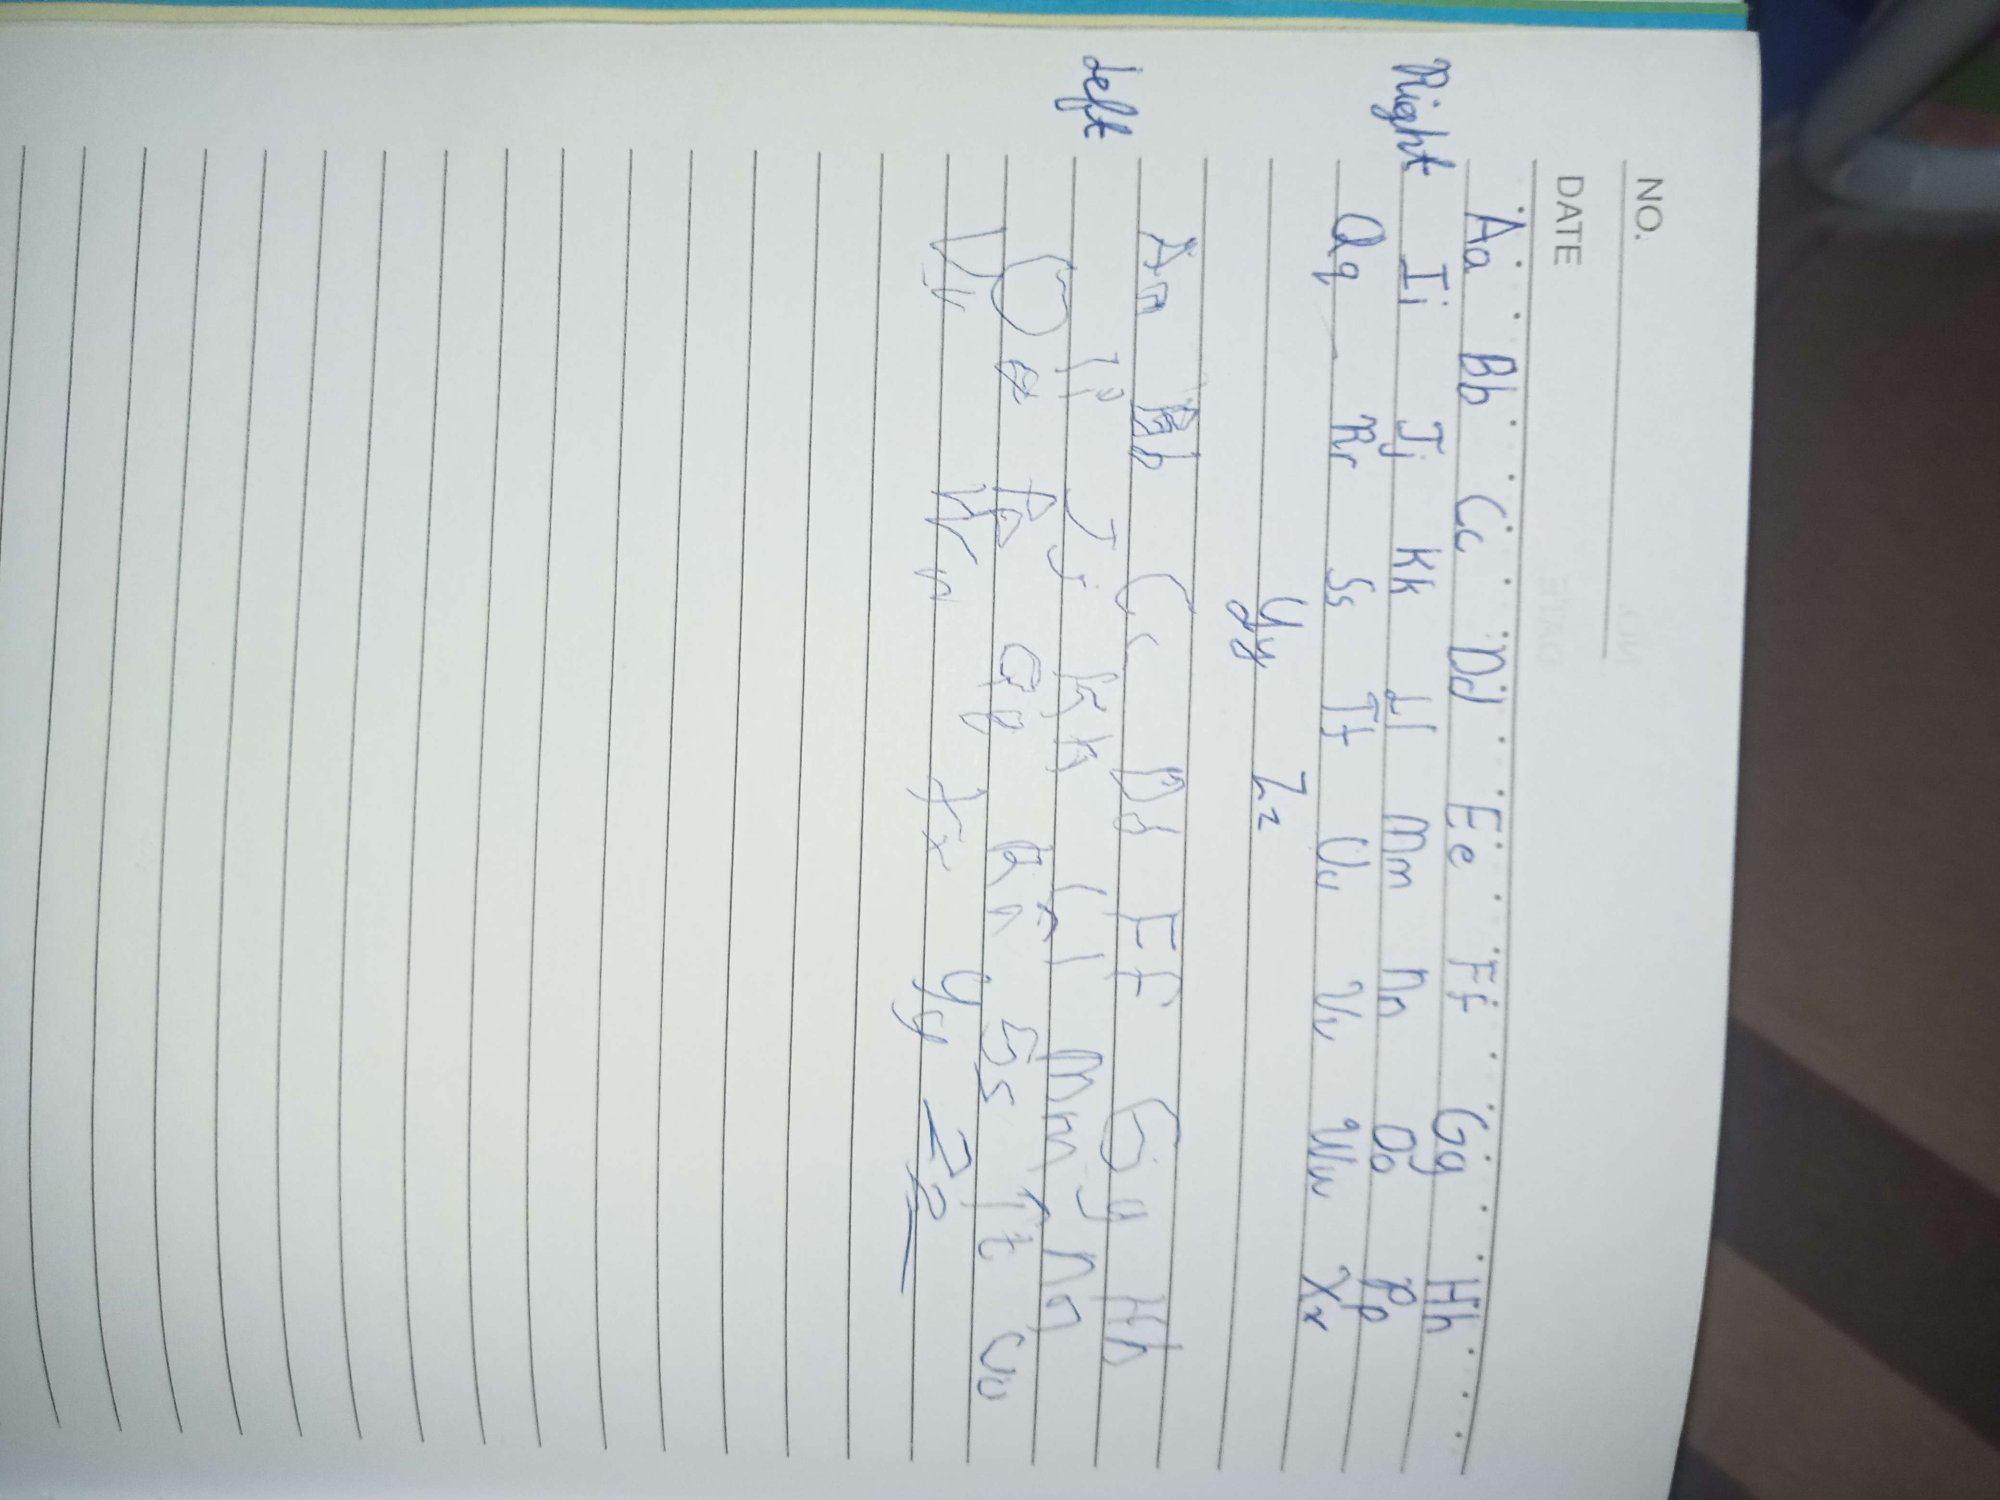 NO.
DATE
Aa Bb Cc Dd Ee Ff Gg Hh
Right Ii Jj Kk Ll Mm Nn Oo Pp
Qq Rr Ss Tt Uu Vv Ww Xx
Yy Zz
Aa Bb Cc Dd E F Gg Hh
Left Ii Jj Kk Ll Mm Nn
Oo Pp Qq Rr Ss Tt Uu
Vv Ww Xx Yy Zz